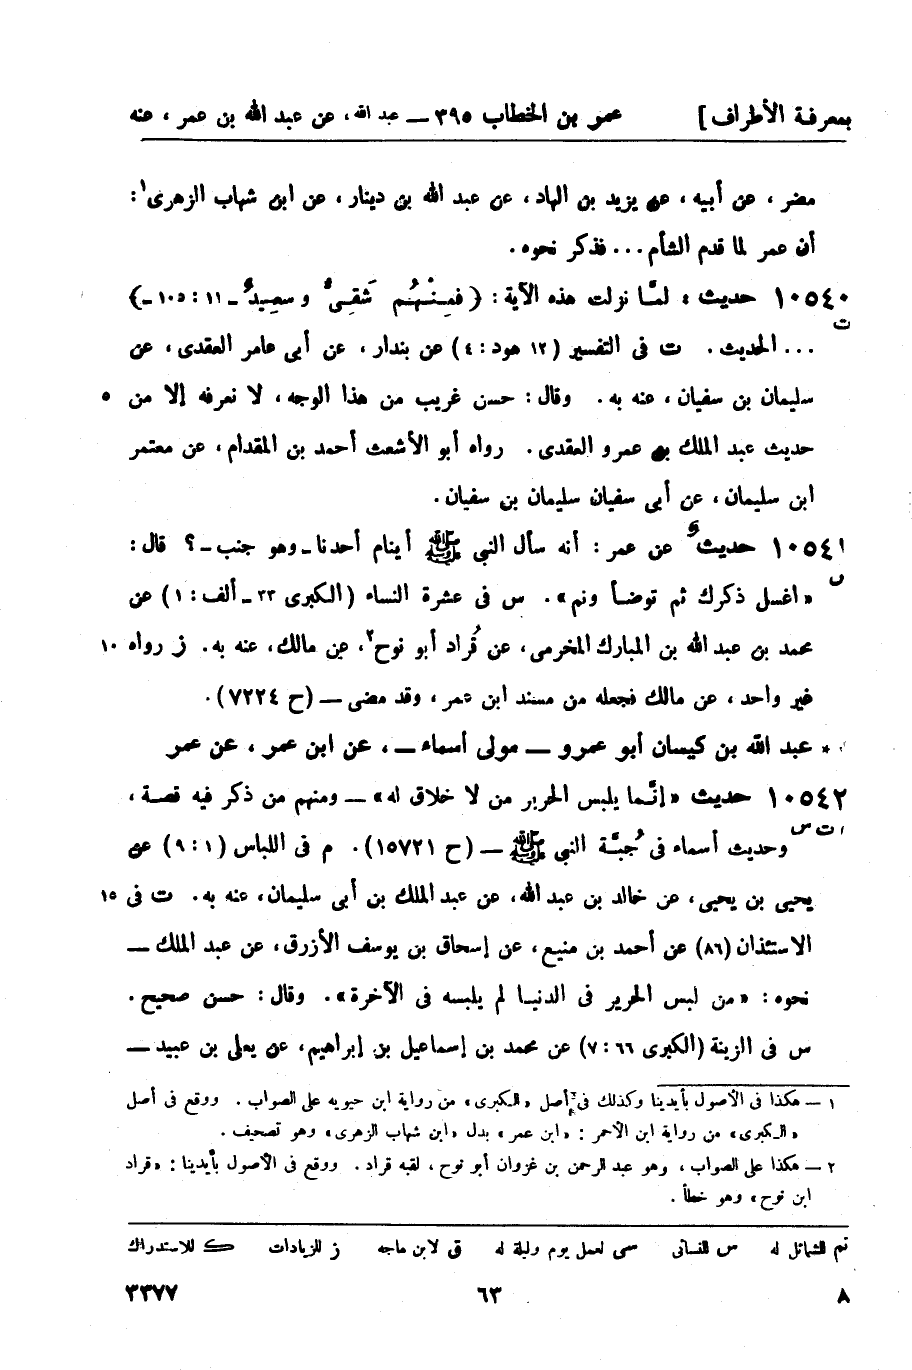 بمعرفة الأطراف] عمر بن الخطاب ٣٩٥ — عبد الله، عن عبد الله بن عمر، عنه
مضر، عن أبيه، عن يزيد بن الهاد، عن عبد الله بن دينار، عن ابن شهاب الزهرى١:
أن عمر لما قدم الشأم... فذكر نحوه.
١٠٥٤٠ حديث: لمّا نزلت هذه الآية: (فمِنْهُم شَقِىٌّ وسعِيدٌ ـ ١١: ١٠٥ ـ)
ت
... الحديث. ت فى التفسير (١٢ هود: ٤) عن بندار، عن أبى عامر العقدى، عن
سليمان بن سفيان، عنه به. وقال: حسن غريب من هذا الوجه، لا نعرفه إلا من ٥
حديث عبد الملك بن عمرو العقدى. رواه أبو الأشعث أحمد بن المقدام، عن معتمر
ابن سليمان، عن أبى سفيان سليمان بن سفيان.
١٠٥٤١ حديثُ عن عمر: أنه سأل النبى ﷺ أينام أحدنا ـ وهو جنب ـ؟ قال:
س
«اغسل ذكرك ثم توضأ ونم». س فى عشرة النساء (الكبرى ٣٣ ـ ألف: ١) عن
محمد بن عبد الله بن المبارك المخرمى، عن قُراد أبو نوح٢، عن مالك، عنه به. ز رواه ١٠
غير واحد، عن مالك فجعله من مسند ابن عمر، وقد مضى — (ح ٧٢٢٤).
* عبد الله بن كيسان أبو عمرو — مولى أسماء —، عن ابن عمر، عن عمر
١٠٥٤٢ حديث «إنّما يلبس الحرير من لا خلاق له» — ومنهم من ذكر فيه قصة،
م ت س
وحديث أسماء فى جُبّة النبى ﷺ — (ح ١٥٧٢١). م فى اللباس (١: ٩) عن
يحيى بن يحيى، عن خالد بن عبد الله، عن عبد الملك بن أبى سليمان، عنه به. ت فى ١٥
الاستئذان (٨٦) عن أحمد بن منيع، عن إسحاق بن يوسف الأزرق، عن عبد الملك —
نحوه: «من لبس الحرير فى الدنيا لم يلبسه فى الآخرة». وقال: حسن صحيح.
س فى الزينة (الكبرى ٦٦: ٧) عن محمد بن إسماعيل بن إبراهيم، عن يعلى بن عبيد —
١ — هكذا فى الأصول بأيدينا وكذلك فى أصل «الكبرى» من رواية ابن حيويه على الصواب. ووقع فى أصل
«الكبرى» من رواية ابن الأحمر: «ابن عمر» بدل «ابن شهاب الزهرى» وهو تصحيف.
٢ — هكذا على الصواب، وهو عبد الرحمن بن غزوان أبو نوح، لقبه قراد. ووقع فى الأصول بأيدينا: «قراد
ابن نوح» وهو خطأ.
تم للشمائل له س للنسائى سى لعمل يوم وليلة له ق لابن ماجه ز للزيادات ك للاستدراك
٨ ٦٣ ٣٣٧٧